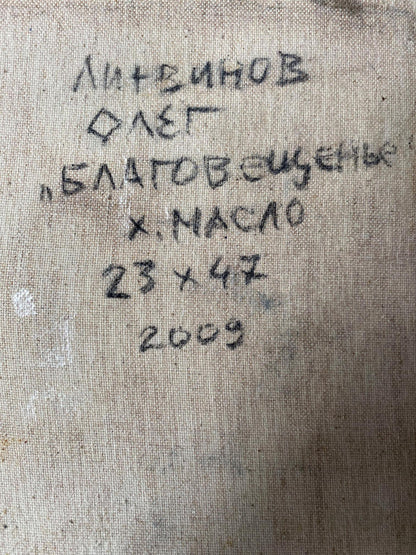 ЛИТВИНОВ
ОЛЕГ
„БЛАГОВЕЩЕНЬЕ"
Х. МАСЛО
23 x 47
2009